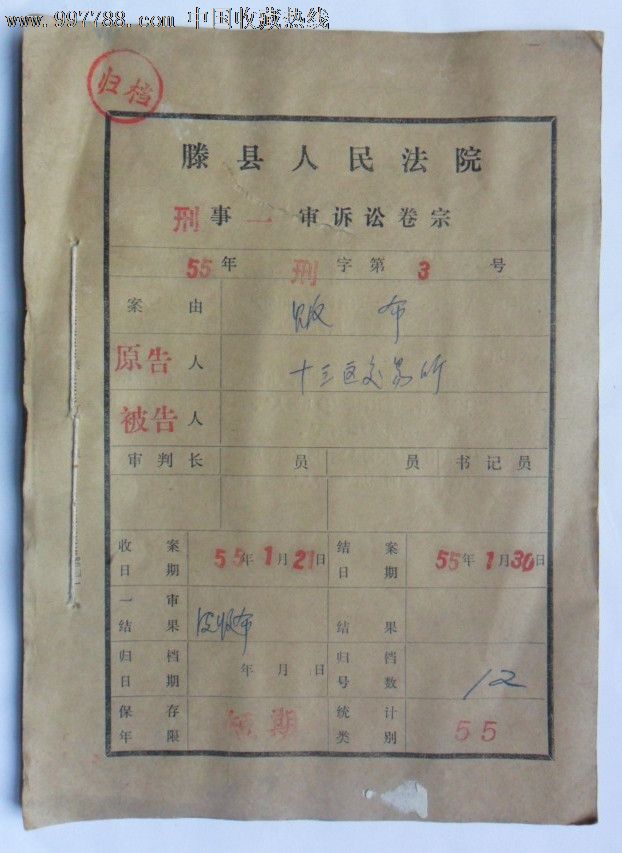 www.997788.com 中国收藏热线
归档
滕县人民法院
刑事一审诉讼卷宗
55年 刑字第 3 号
案由 贩布
原告人 十三区交易所
被告人
审判长 员 员 书记员
收案日期 55年1月21日 结案日期 55年1月30日
一审结果 没收布 结果
归档日期 年 月 日 归档号数 12
保存年限 短期 统计类别 55